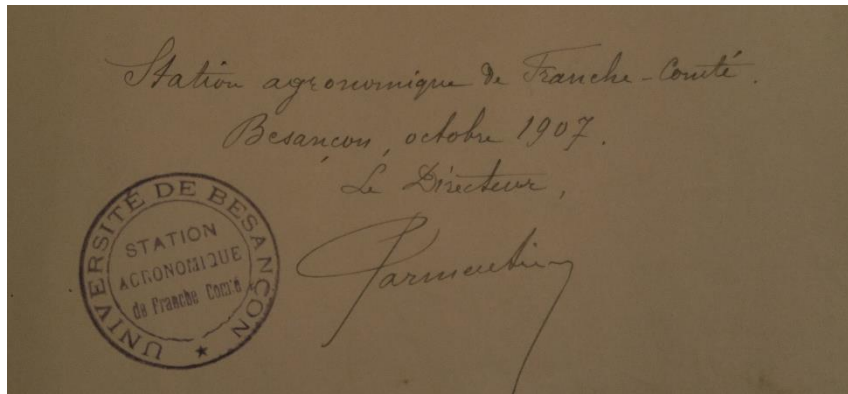 Station agronomique de Franche-Comté.
Besançon, octobre 1907.
Le Directeur,
Parmentier
UNIVERSITÉ DE BESANÇON
STATION
AGRONOMIQUE
de Franche Comté